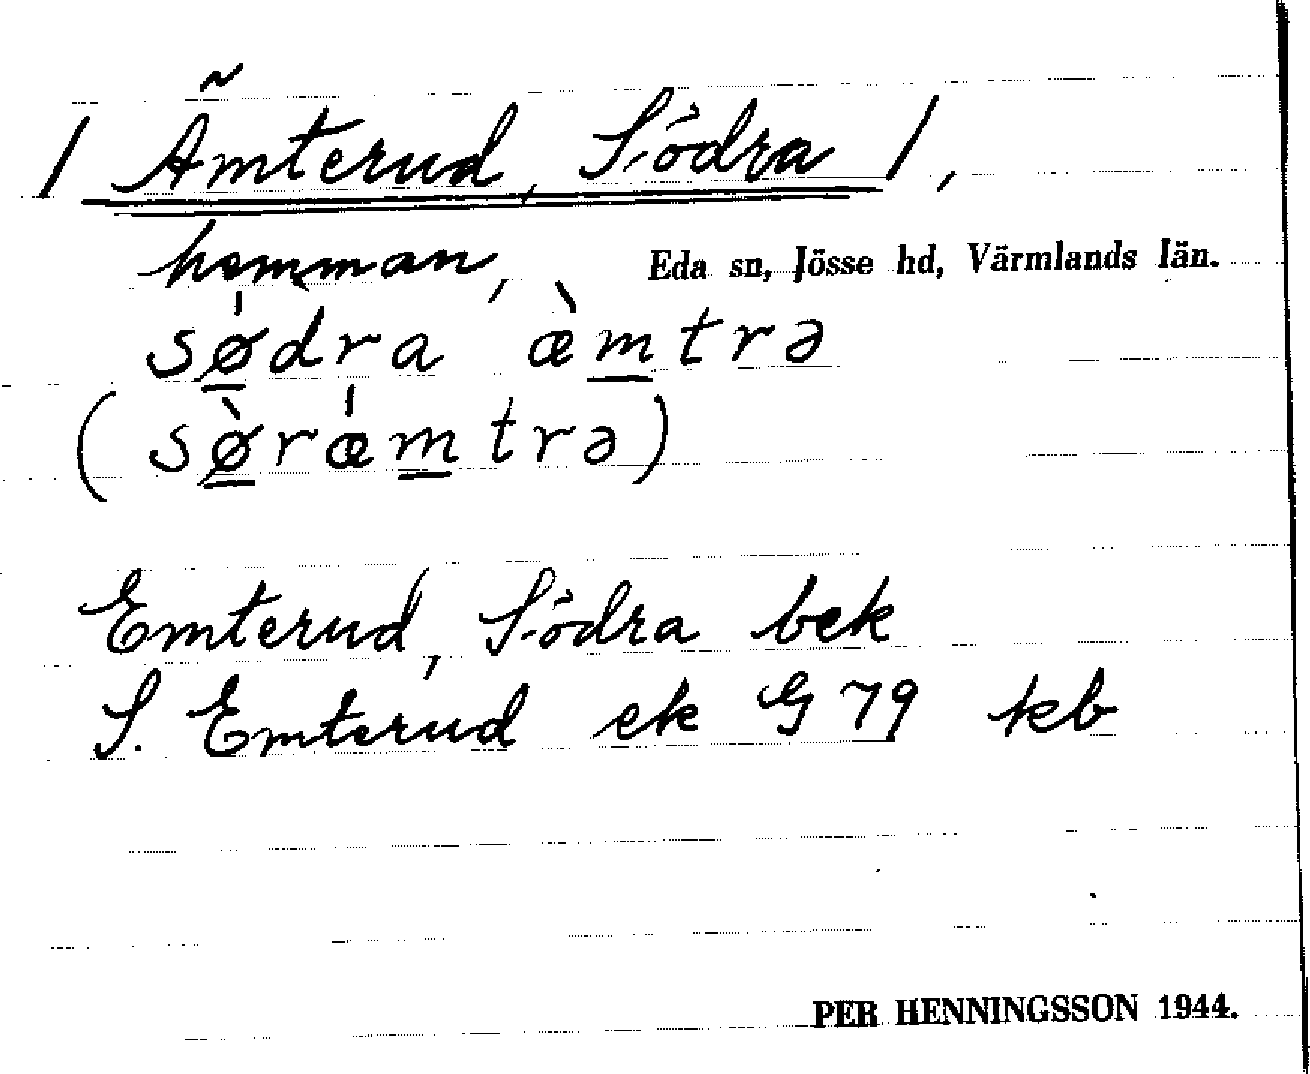 / Ämterud, Södra /,
hemman, Eda sn, Jösse hd, Värmlands län.
sǿ̲dra æ̀m̲trə
(sø̲̀rǽm̲trə)
Emterud, Södra bek
S. Emterud ek G 79 kb
PER HENNINGSSON 1944.